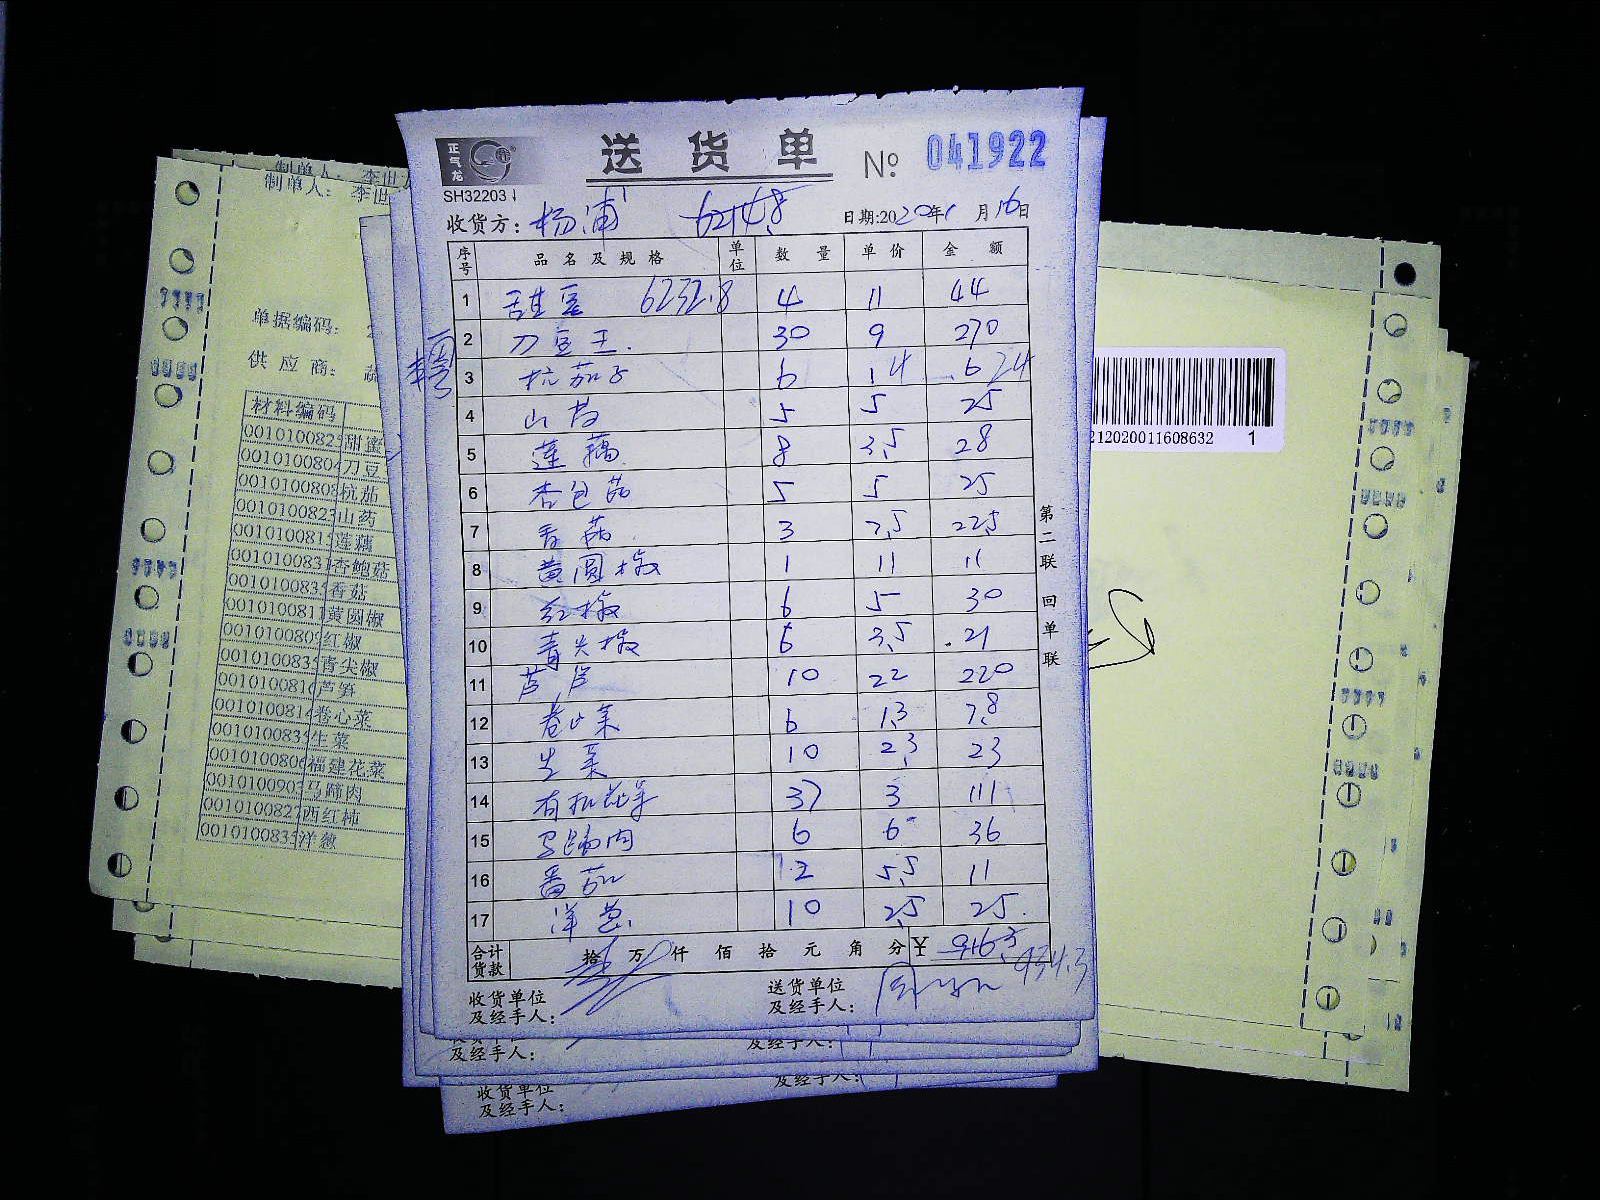 送货单 № 041922
正气龙
SH32203
收货方：杨浦 6214.8 日期:2020年1月16日
序号 品名及规格 单位 数量 单价 金额
1 甜蜜豆 6232.8 4 11 44
2 刀豆王 30 9 270
3 杭茄子 6 14 6 24
4 山药 5 5 25
5 莲藕 8 3.5 28
6 杏包菇 5 5 25
7 香菇 3 7.5 22.5
8 黄圆椒 1 11 11
9 红椒 6 5 30
10 青尖椒 6 3.5 21
11 芦 10 22 220
12 卷心菜 6 1.3 7.8
13 生菜 10 2.3 23
14 有机花菜 37 3 111
15 马蹄肉 6 6 36
16 番茄 2 5.5 11
17 洋葱 10 2.5 25
合计货款 拾万仟佰拾元角分 ¥ 916.3 934.3
收货单位及经手人： 送货单位及经手人：
第二联 回单联
及经手人： 及经手人：
收货单位
及经手人：
及经手人：
制单人： 李世
制单人： 李世
单据编码：
供应商： 蔬
材料编码
0010100825 甜蜜
0010100804 刀豆
0010100808 杭茄
0010100823 山药
0010100815 莲藕
0010100831 杏鲍菇
0010100835 香菇
0010100811 黄圆椒
0010100809 红椒
0010100835 青尖椒
0010100816 芦笋
0010100814 卷心菜
0010100835 生菜
0010100806 福建花菜
0010100903 马蹄肉
0010100827 西红柿
0010100835 洋葱
212020011608632 1